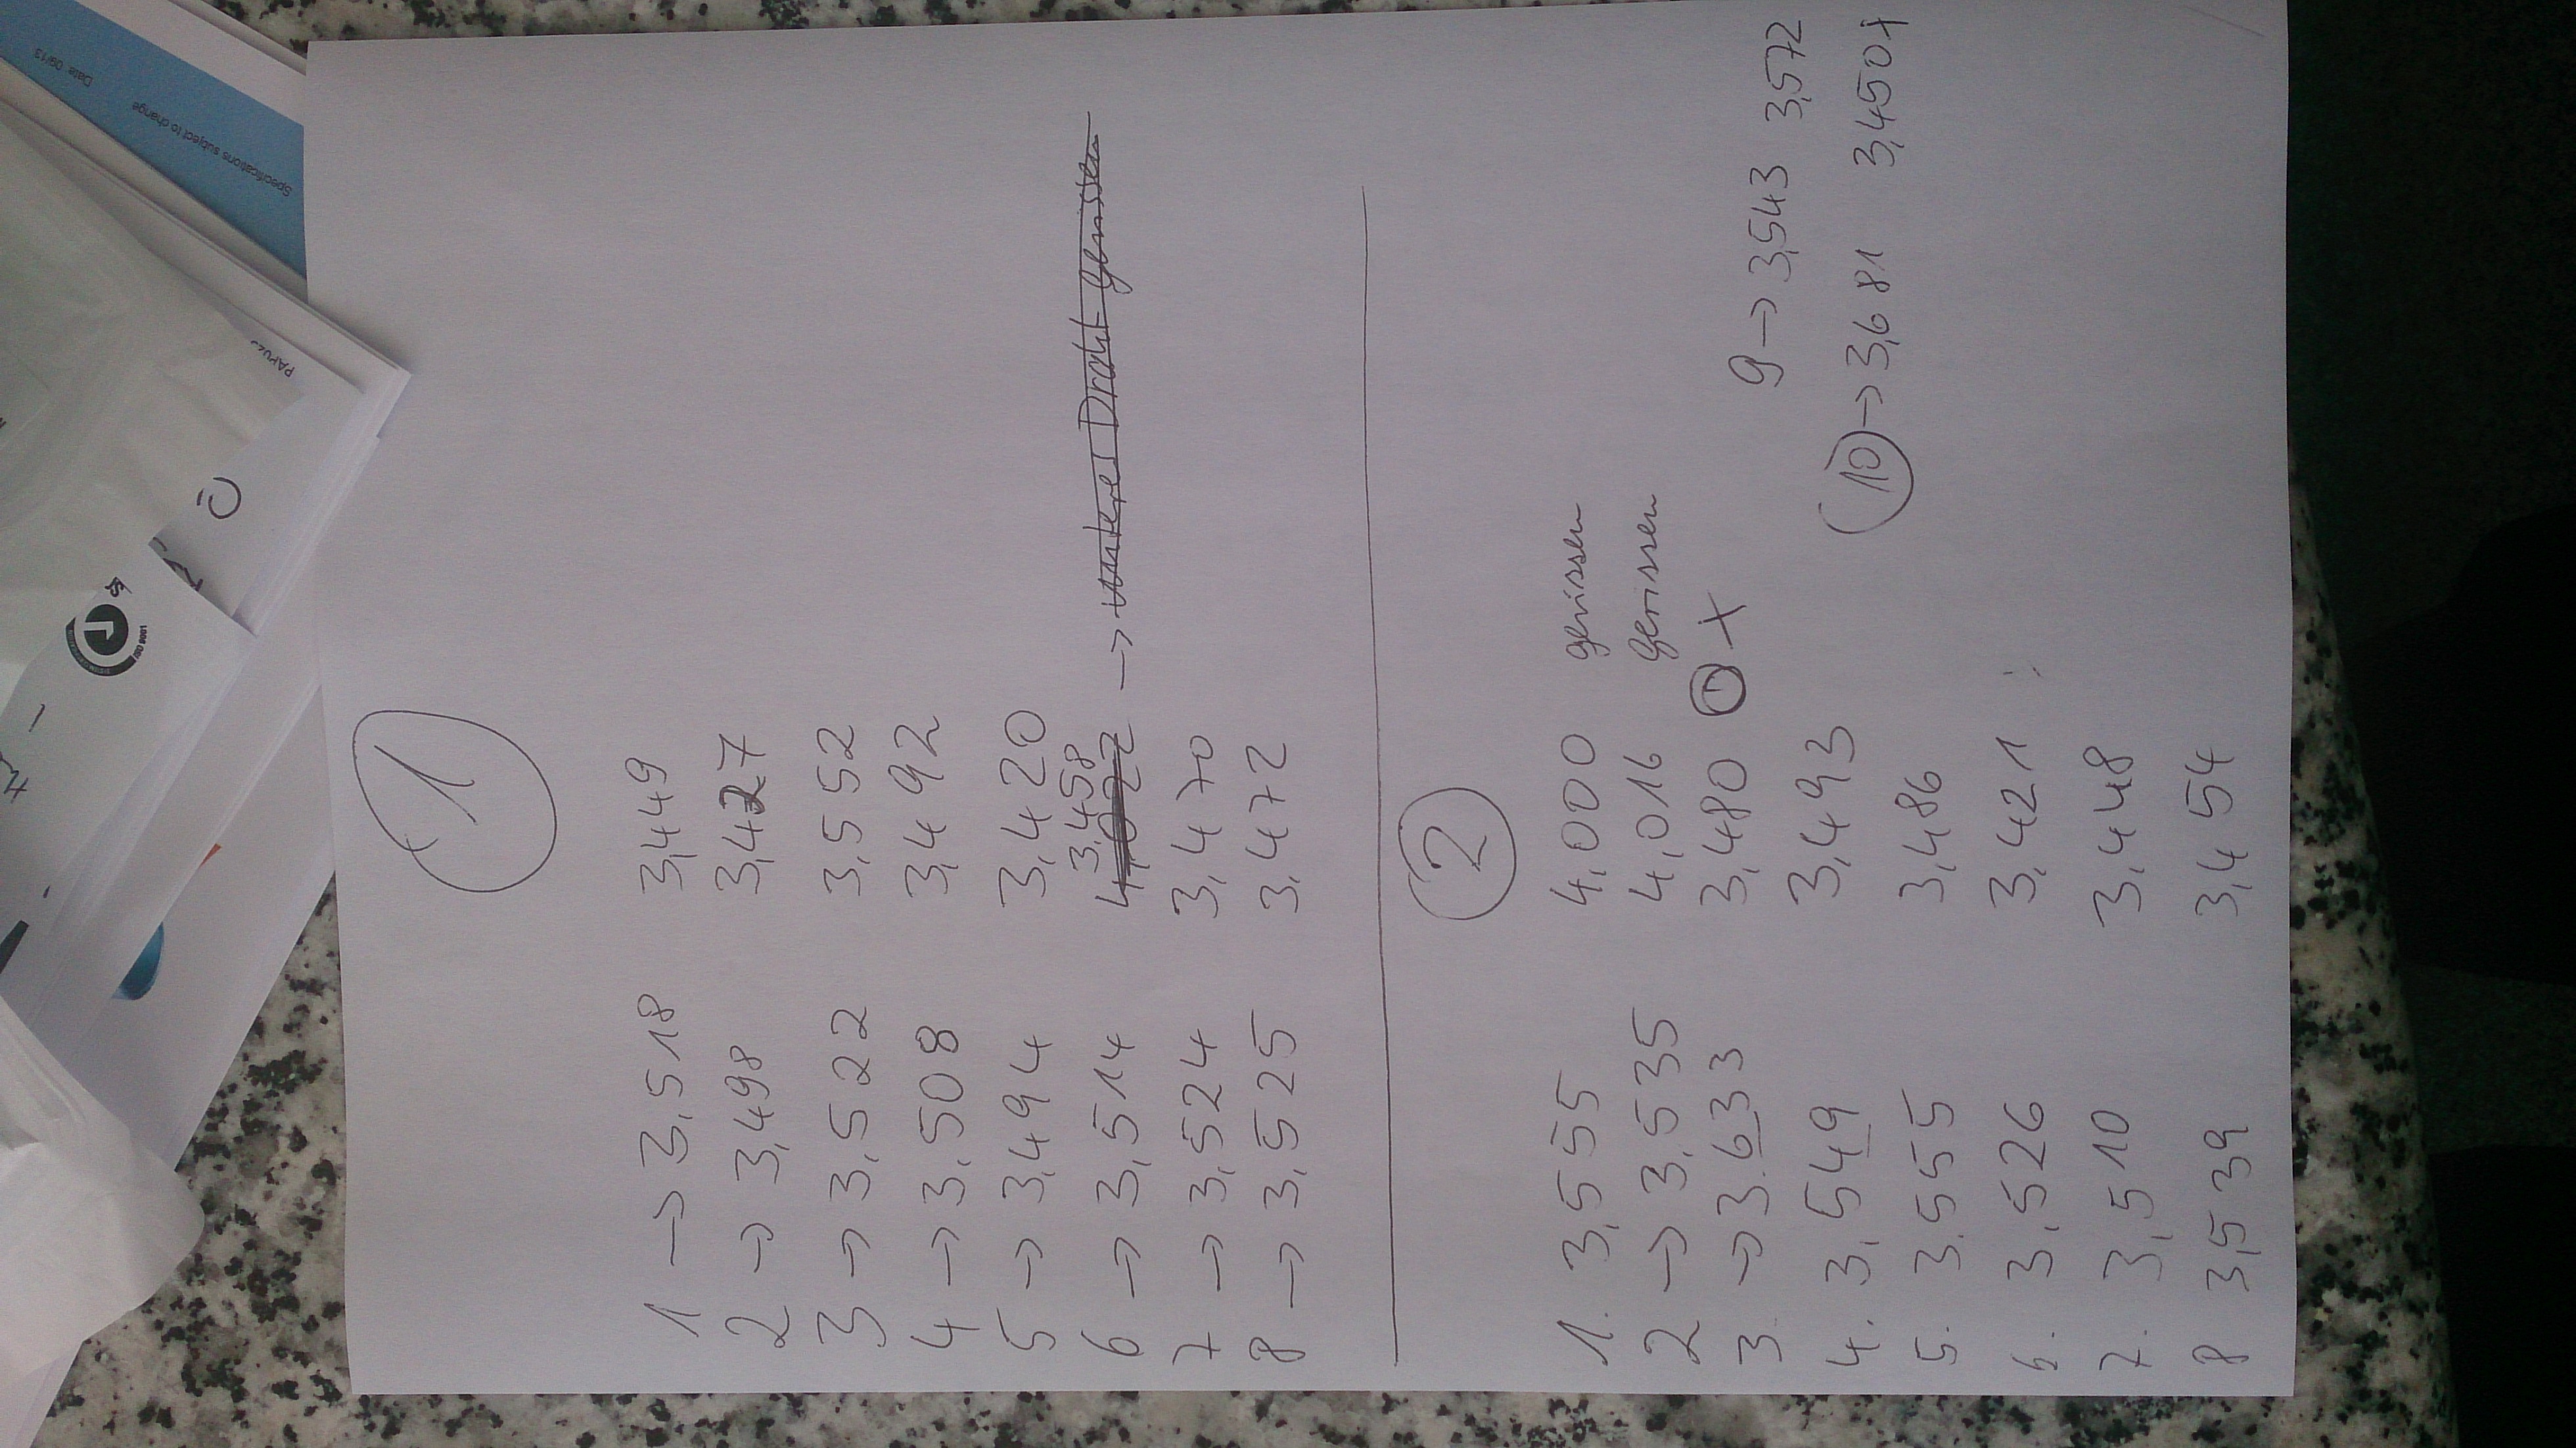 1
1 → 3,518 3,449
2 → 3,498 3,427
3 → 3,522 3,552
4 → 3,508 3,492
5 → 3,494 3,420
3,458
6 → 3,514 4,022 → unteres Draht gerissen
7 → 3,524 3,470
8 → 3,525 3,472
2
1. 3,555 4,000 gerissen
2 → 3,535 4,016 gerissen
3. → 3.633 3,480 1 X
4. 3,549 3,493
9 → 3,543 3,572
5. 3.555 3,486
10 → 3,681 3,450 +
6. 3,526 3,421
7. 3,510 3,448
8 3,539 3,454
Specifications subject to change
Date 09/13
ISO 9001